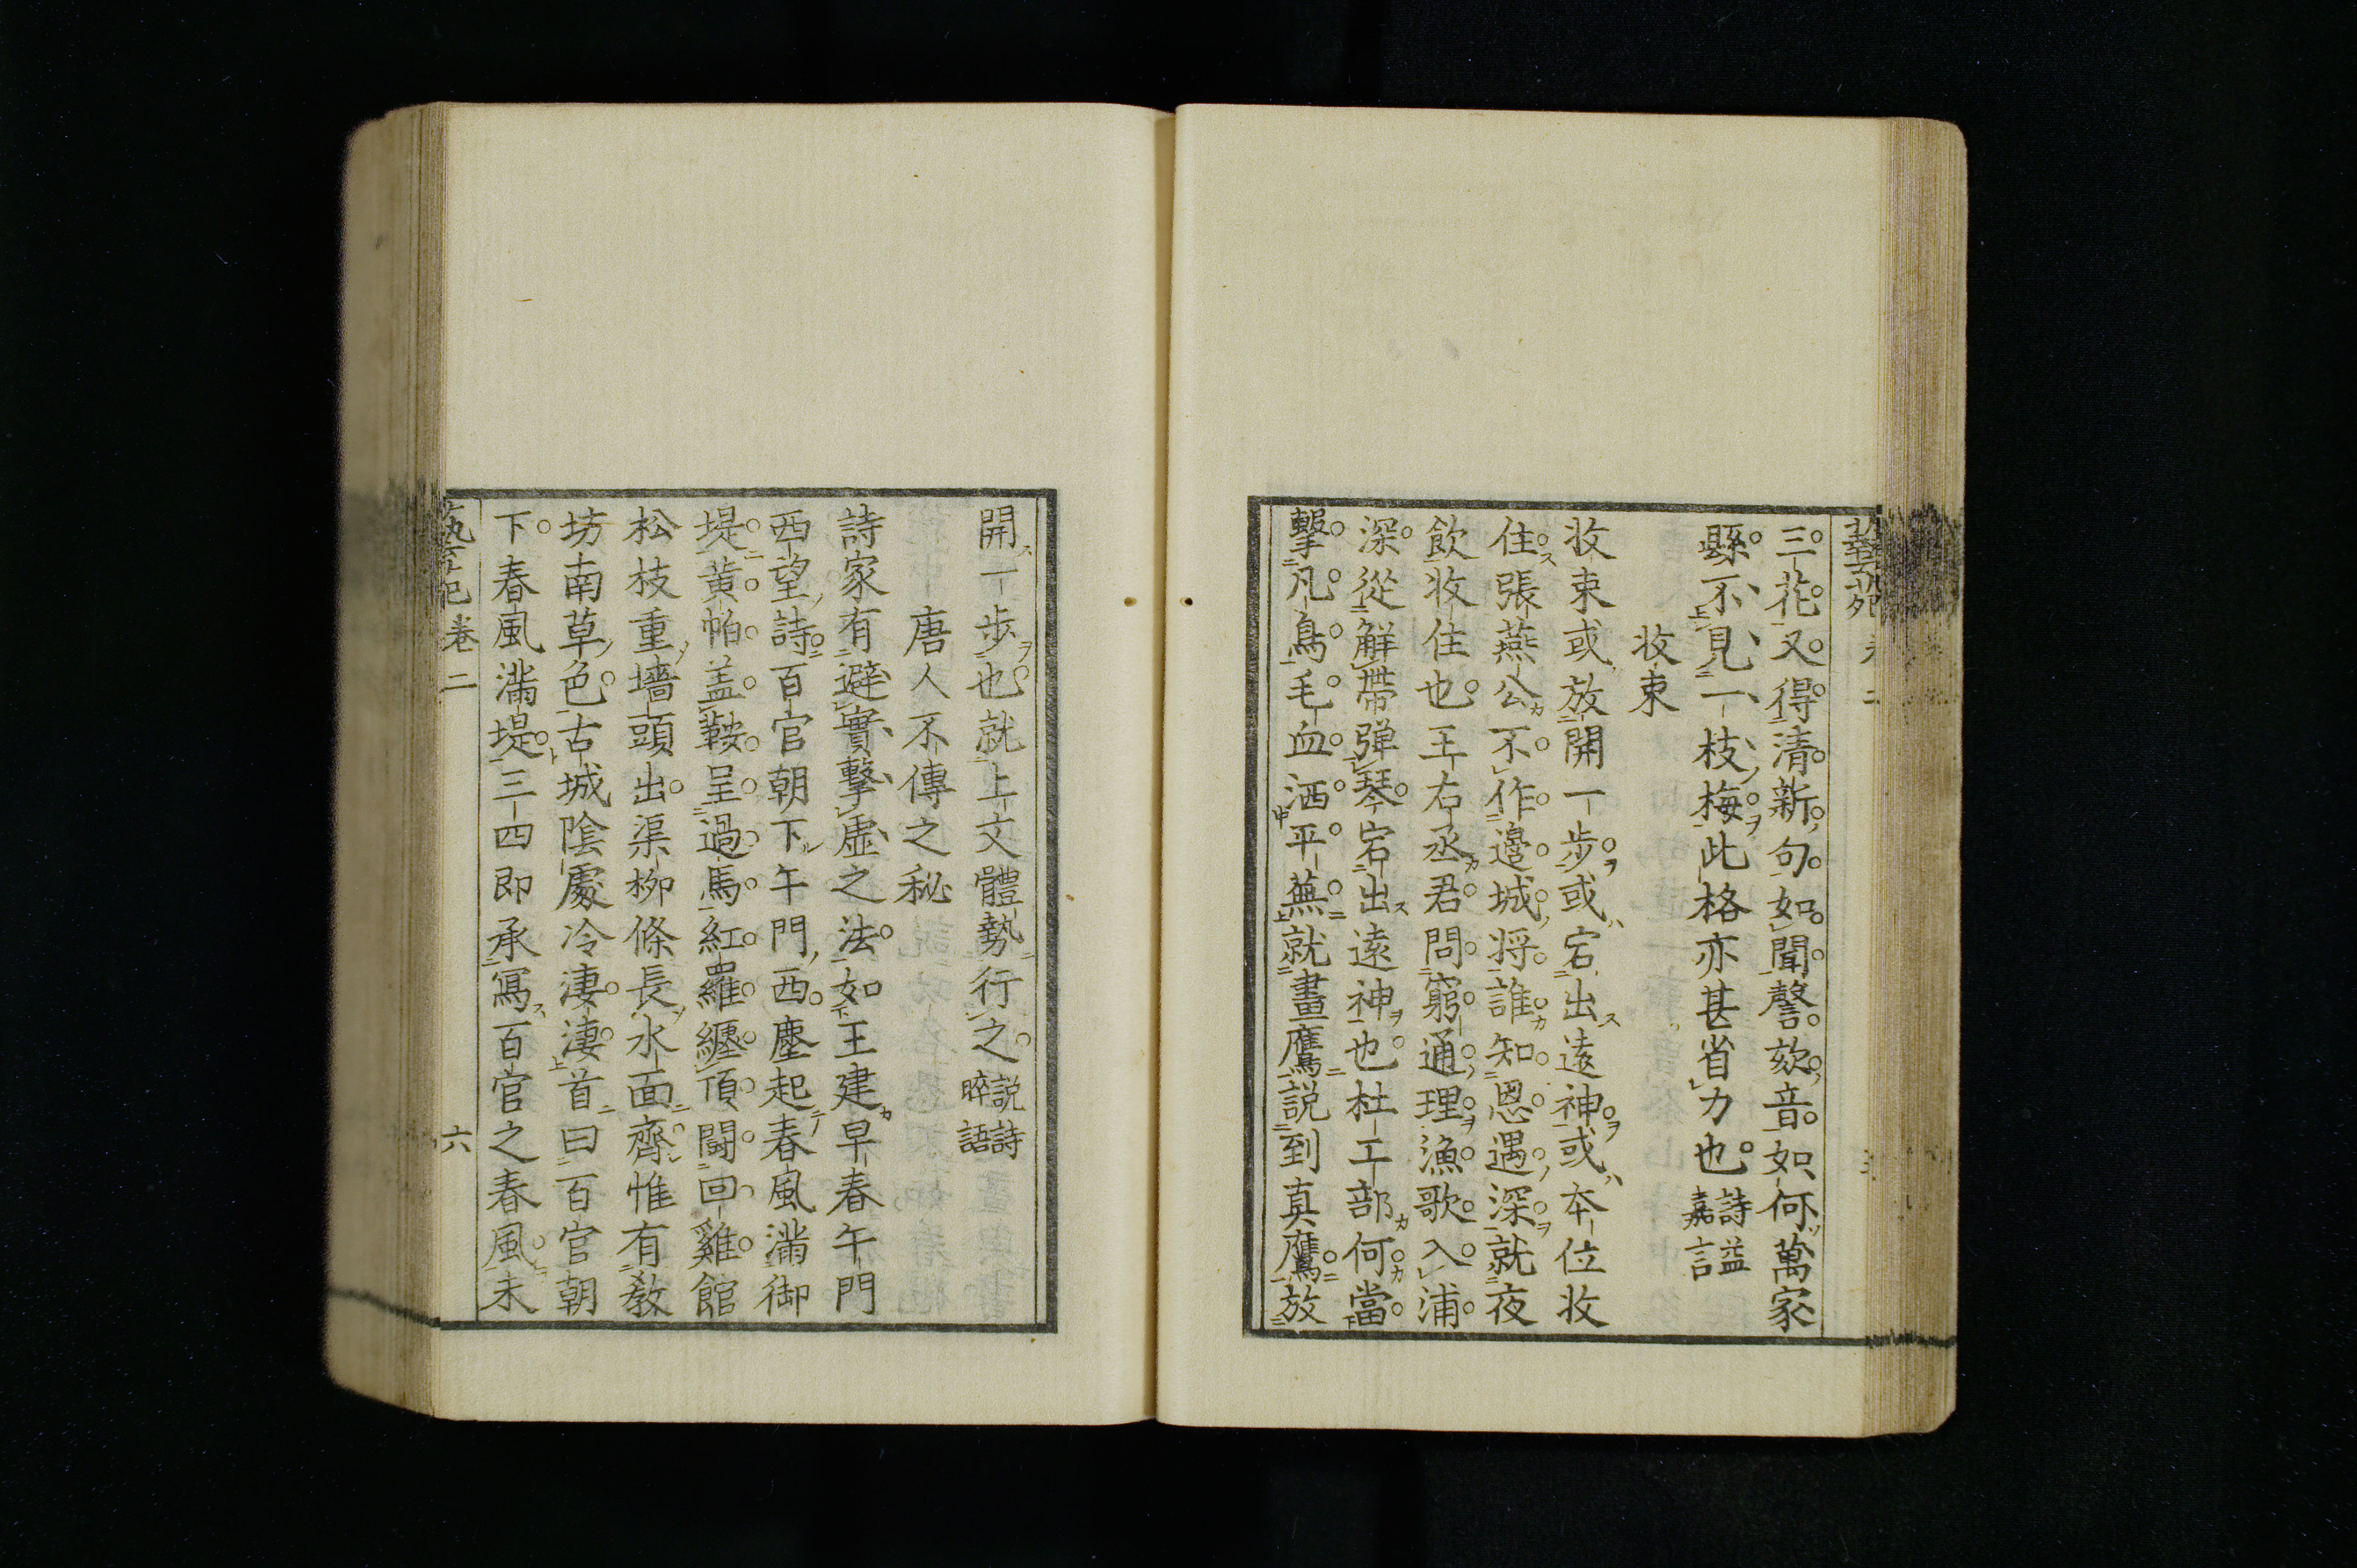 三花又得清新句如聞謦欬音如何萬家
縣不見一枝梅此格亦甚省力也詩謚嘉言
收束
收束或放開一步或宕出遠神或本位收
住張燕公不作邉城将誰知恩遇深就夜
飲收住也王右丞君問窮通理漁歌入浦
深從解帶弾琴宕出遠神也杜工部何當
擊凡鳥毛血洒平蕪就畫鷹説到真鷹放
開一步也就上文體勢行之説詩晬語
唐人不傳之秘
詩家有避實擊虚之法如王建早春午門
西望詩百官朝下午門西塵起春風滿御
堤黄帕盖鞍呈過馬紅羅纒頂鬪回雞館
松枝重墻頭出渠柳條長水面齊惟有敎
坊南草色古城陰處冷淒淒首曰百官朝
下春風滿堤三四即承寫百官之春風未
卷二
六